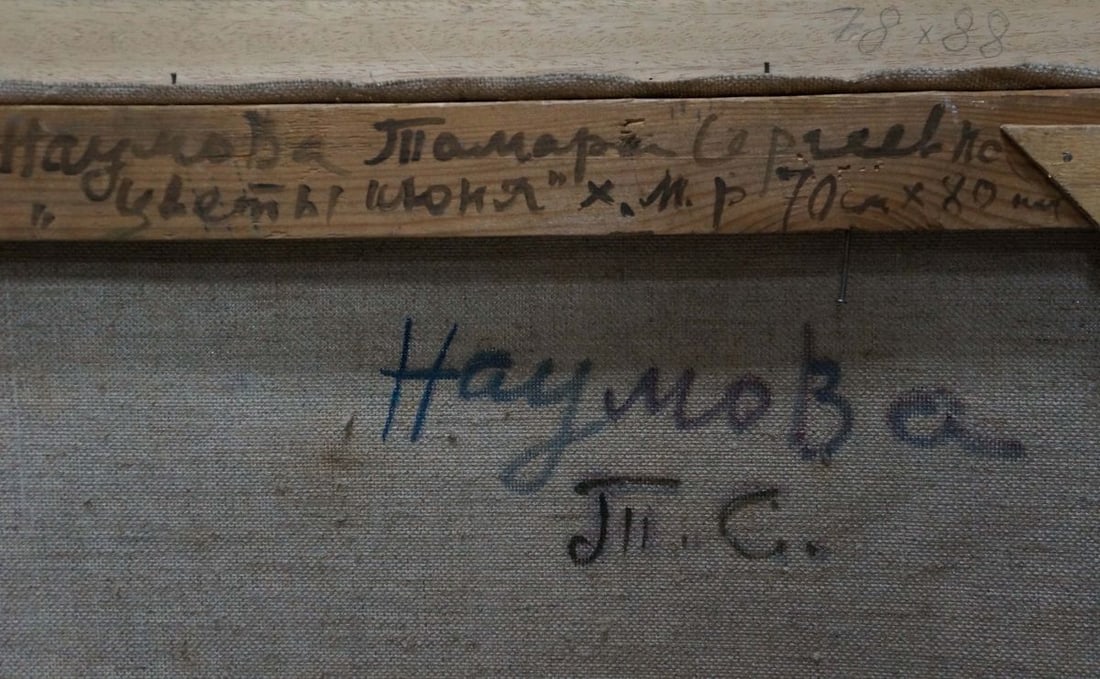 78 x 88
Наумова Тамара Сергеевна
„Цветы июня" х. м. р 70см х 80
Наумова
Т. С.